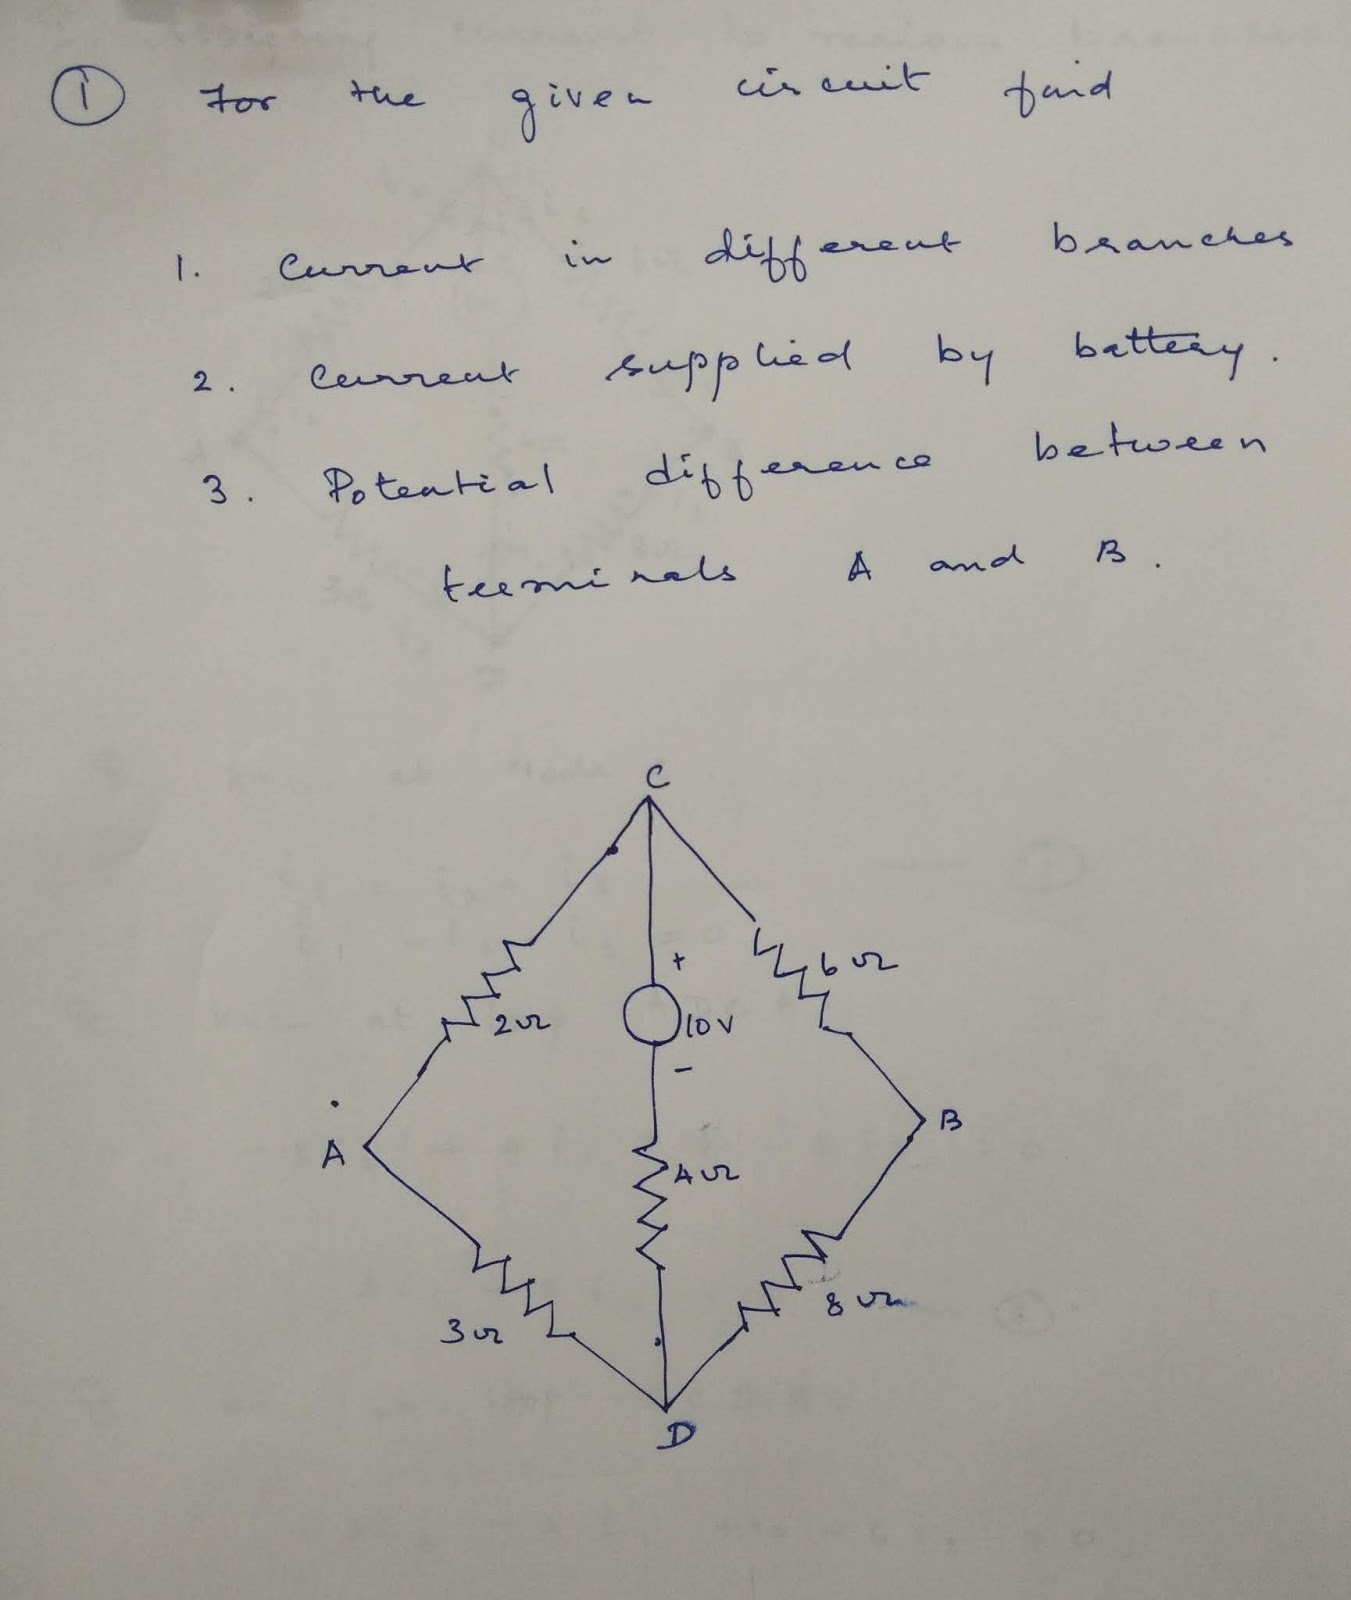 ① For the given circuit find
1. Current in different branches
2. Current supplied by battery.
3. Potential difference between
terminals A and B.
C
+
6Ω
2Ω
10V
-
A
B
4Ω
3Ω
8Ω
D